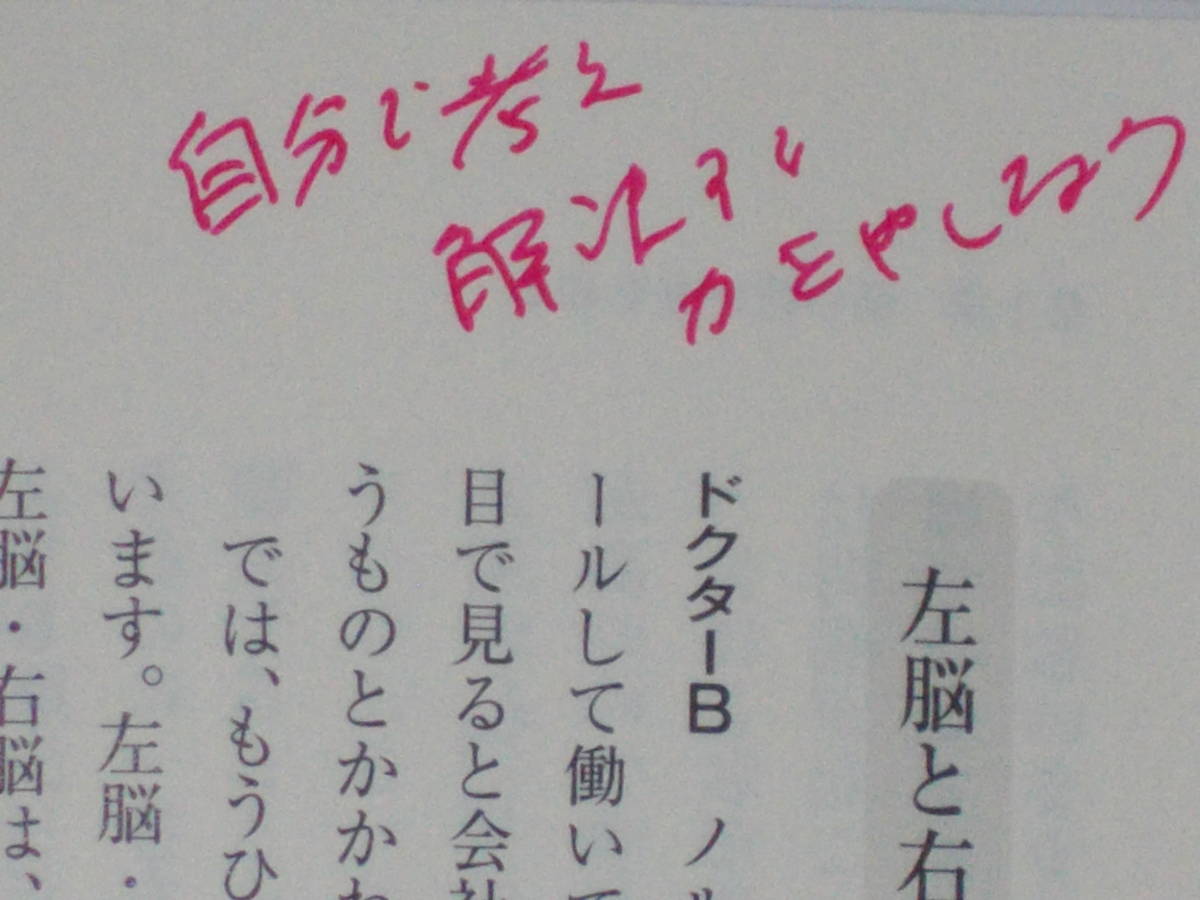 自分で考え
解決する
力をやしなおう
左脳と右
ドクターB　ノル
ールして働いて
目で見ると会社
うものとかかわ
では、もうひ
います。左脳・
左脳・右脳は、